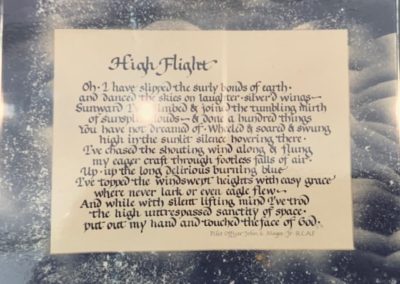 High Flight
Oh · I have slipped the surly bonds of earth ·
and danced the skies on laughter · silver'd wings –
Sunward I've climbed & join'd the tumbling mirth
of sunsplit clouds – & done a hundred things
You have not dreamed of · Wheeled & soared & swung
high in the sunlit silence hovering there ·
I've chased the shouting wind along & flung
my eager craft through footless falls of air ·
Up · up the long delirious burning blue
I've topped the windswept heights with easy grace
where never lark or even eagle flew –
And while with silent lifting mind I've trod
the high untrespassed sanctity of space ·
put out my hand and touched the face of God ·
Pilot Officer John G. Magee Jr RCAF